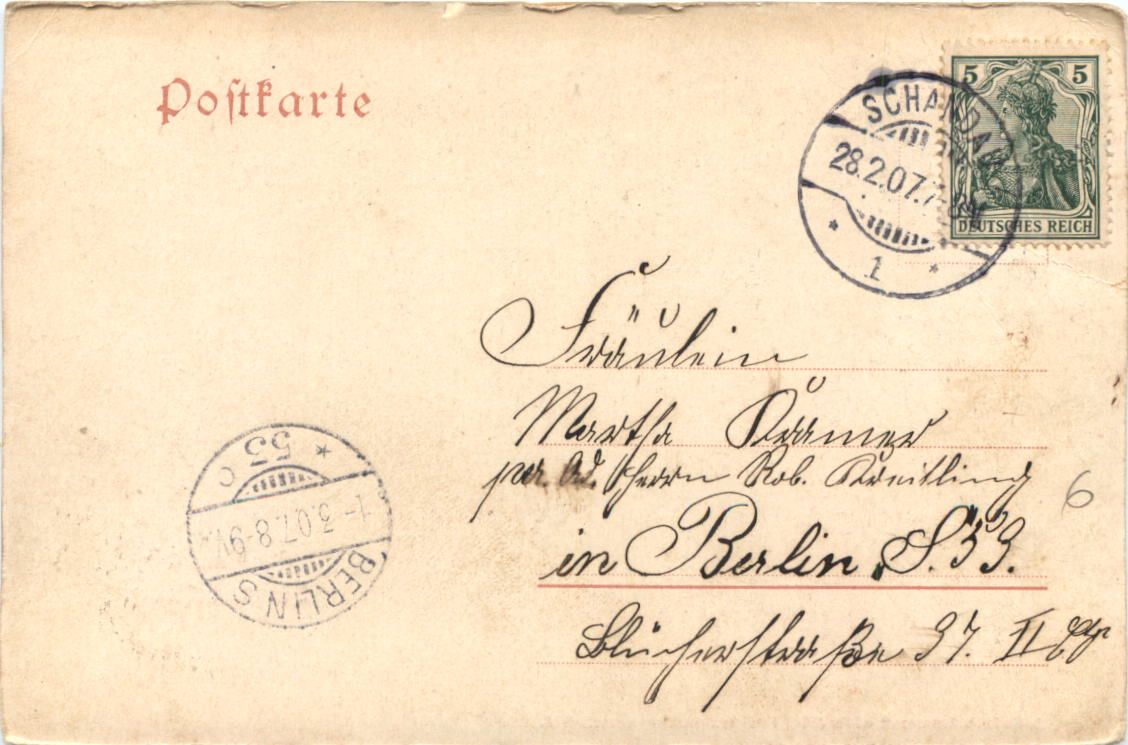 Postkarte
5 5
DEUTSCHES REICH
SCHANDAU
28.2.07.7-8N
* 1 *
Fräulein
Martha Krämer
per. Ad. Herrn Rob. Kreitling
in Berlin S.53.
Blücherstraße 37. II
6
BERLIN S
1-3.07.8-9V.
* 53 c